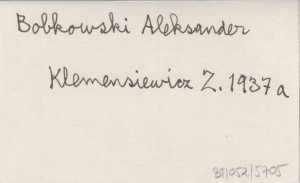 Bobkowski Aleksander
Klemensiewicz Z. 1937a
BT/052/5705